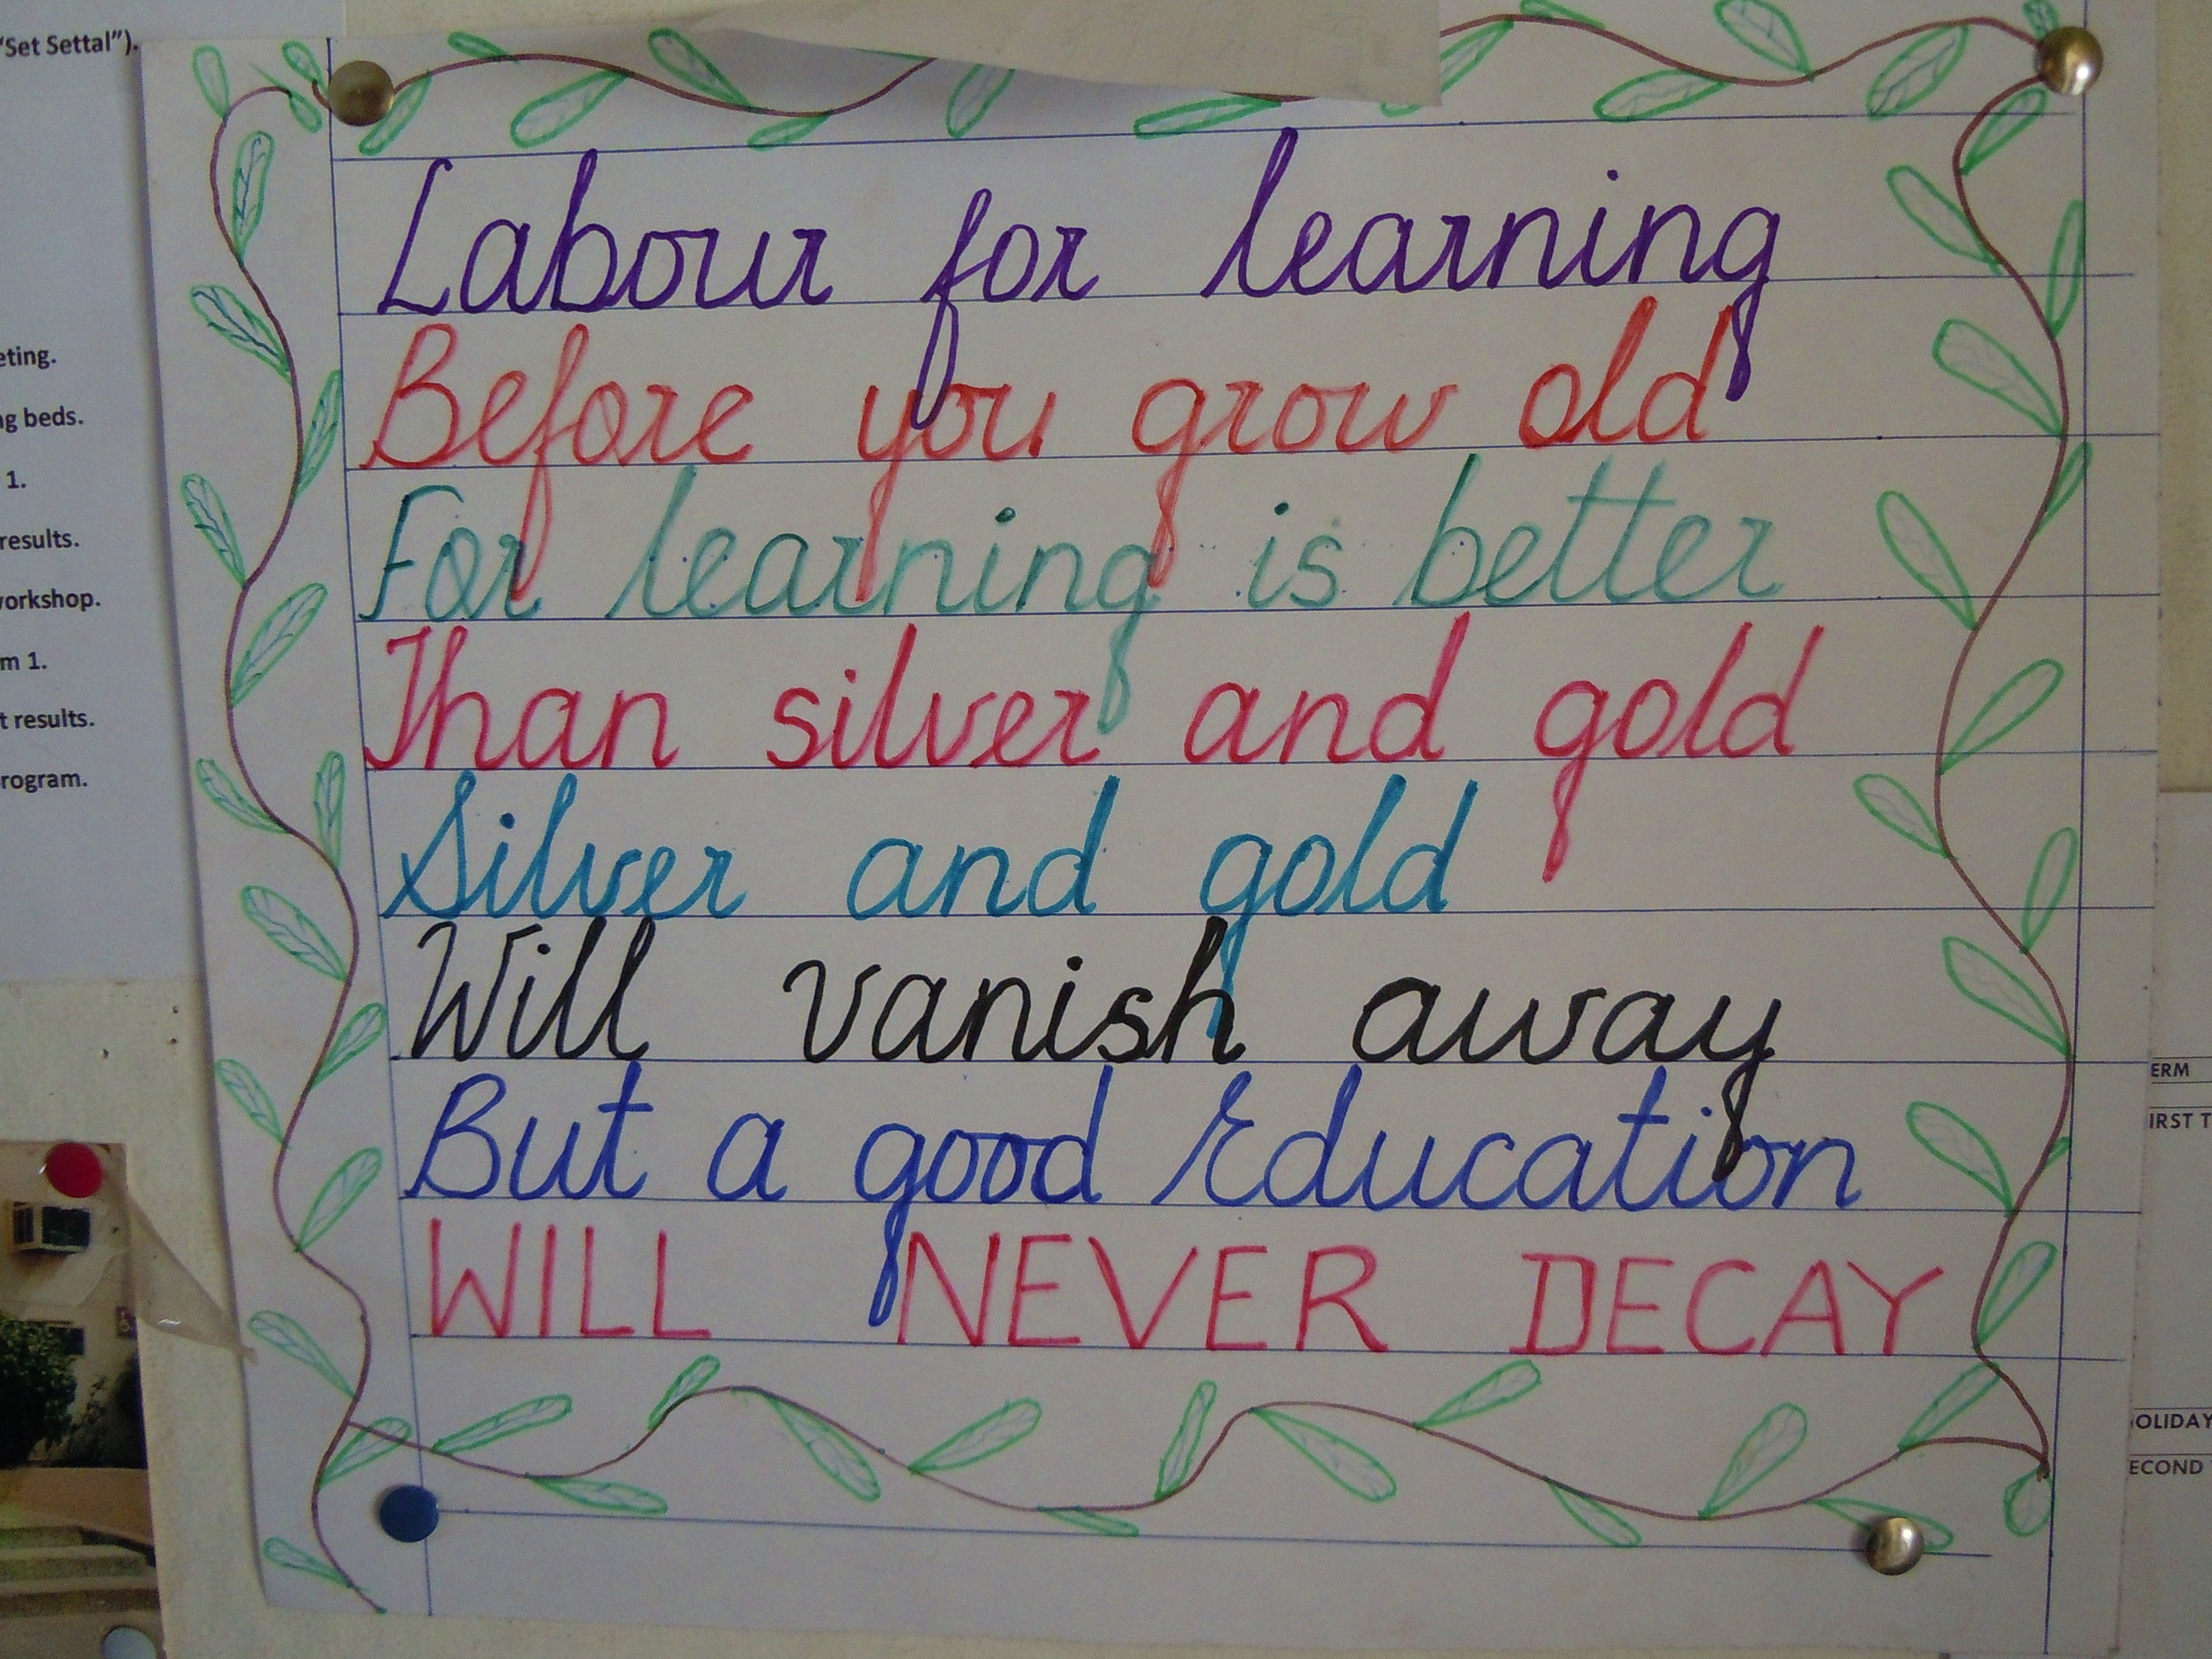 "Set Settal").
eting.
g beds.
1.
results.
workshop.
m 1.
t results.
rogram.
Labour for learning
Before you grow old
For learning is better
Than silver and gold
Silver and gold
Will vanish away
But a good Education
WILL NEVER DECAY
ERM
IRST T
OLIDAY
ECOND